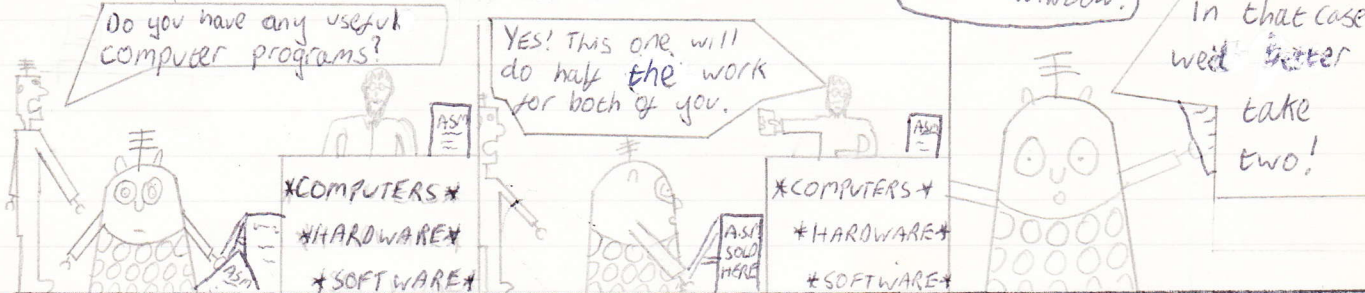 Do you have any useful
computer programs?
ASM
*COMPUTERS*
*HARDWARE*
*SOFTWARE*
ASM
YES! This one will
do half the work
for both of you.
ASM
*COMPUTERS*
*HARDWARE*
*SOFTWARE*
ASM
SOLD
HERE
WINDOW!
In that case
we'd better
take
two!